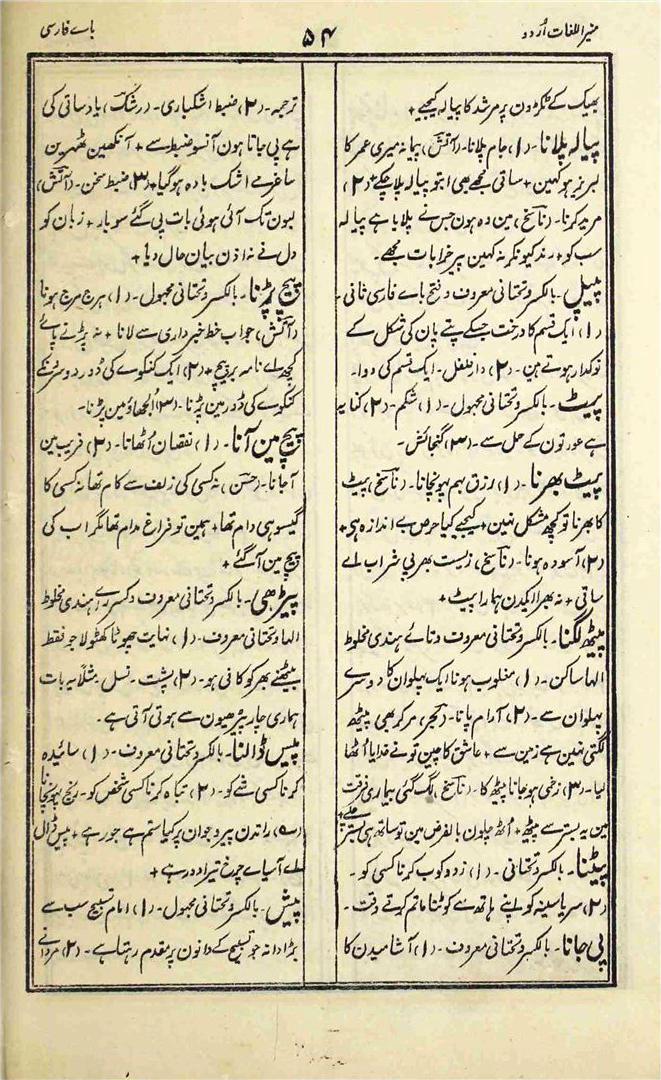 منیر اللغات اُردو
۵۴
باے فارسی
بھیک کے ٹکڑون پر مرشد کا پیالہ کیجیے +
پیالہ پلانا۔ (۱) جام پلانا۔ (آتش) پیانہ میری عمر کا
لبریز ہو کہین + ساقی مجھے بھی اب تو پیالہ پلا چکے + (۲)
مرید کرنا۔ (ناسخ) مین وہ ہون جس نے پلایا ہے پیالہ
سب کو + رند کیونکر نہ کہین پیر خرابات مجھے۔
پیپل۔ بالکسر و تحتانی معروف و فتح باے فارسی ثانی۔
(۱) ایک قسم کا درخت جسکے پتے پان کی شکل کے
نوکدار ہوتے ہین۔ (۲) دار فلفل۔ ایک قسم کی دوا۔
پیٹ۔ بالکسر و تحتانی مجہول۔ (۱) شکم۔ (۲) کنایہ
ہے عورتون کے حمل سے۔ (۳) گنجائش۔
پیٹ بھرنا۔ (۱) رزق بہم پہونچانا۔ (ناسخ) پیٹ
کا بھرنا تو کچھ مشکل نہین + کیجیے کیا حرص بے اندازہ ہی +
(۲) آسودہ ہونا۔ (ناسخ) زیست بھر پی شراب اے
ساقی + نہ بھرا لیکن ہمارا پیٹ +
پیٹھ لگنا۔ بالکسر و تحتانی معروف و تاے ہندی مخلوط
الہا ساکن۔ (۱) مغلوب ہونا ایک پہلوان کا دوسرے
پہلوان سے۔ (۲) آرام پانا۔ (بحر) مر کر بھی پیٹھ
لگتی نہین ہے زمین سے + عاشق کا چین تو نے خدایا اُٹھا
لیا۔ (۳) زخمی ہو جانا پیٹھ کا۔ (ناسخ) لگ گئی بیماری فرقت
مین یہ بستر سے پیٹھ + اُٹھ چلون بالفرض مین تو ساتھ ہی بستر چلے +
پیٹنا۔ بالکسر و تحتانی۔ (۱) زد و کوب کرنا کسی کو۔
(۲) سر یا سینہ کو اپنے ہاتھ سے کوٹنا ماتم کرتے وقت۔
پی جانا۔ بالکسر و تحتانی معروف۔ (۱) آشامیدن کا
ترجمہ۔ (۲) ضبط اشکباری۔ (رشک) یاد ساقی کی
ہے پی جاتا ہون آنسو ضبط سے + آنکھین ٹھہرین
ساغر مے اشک بادہ ہو گیا + (۳) ضبط سخن۔ (آتش)
لبون تک آئی ہوئی بات پی گئے سو بار + زبان کو
دل نے نہ اذن بیان حال دیا +
پیچ پڑنا۔ بالکسر و تحتانی مجہول۔ (۱) ہرج مرج ہونا
(آتش) جواب خط خبرداری سے لانا + نہ پڑنے پائے
کچھ اے نامہ بر پیچ + (۲) ایک کنکوے کی ڈور دوسرے
کنکوے کی ڈور مین پڑنا۔ (۳) اُلجھاؤ مین پڑنا۔
پیچ مین آنا۔ (۱) نقصان اُٹھانا۔ (۲) فریب مین
آجانا۔ (حسن) نہ کسی کی زلف سے کام تھا نہ کسی کا
گیسو ہی دام تھا + ہمین تو فراغ مدام تھا مگر اب کی
پیچ مین آگئے +
پیڑھی۔ بالکسر و تحتانی معروف و کسر راے ہندی مخلوط
الہا و تحتانی معروف۔ (۱) نہایت چھوٹا کھٹولا جو فقط
بیٹھنے بھر کو کافی ہو۔ (۲) پشت۔ نسل۔ مثلاً یہ بات
ہماری چار پیڑھیون سے ہوتی آتی ہے۔
پیس ڈالنا۔ بالکسر و تحتانی معروف۔ (۱) سائیدہ
کرنا کسی شے کو۔ (۲) تباہ کرنا کسی شخص کو۔ رنج پہونچانا
راندن پیر و جوان پر کیا ستم ہے جور ہے + پیس ڈالا
اے آسیاے چرخ تیرا دور ہے +
پیش۔ بالکسر و تحتانی مجہول۔ (۱) امام تسبیح سب سے
بڑا دانہ جو تسبیح کے دانون پر مقدم رہتا ہے۔ (۲) مردانے